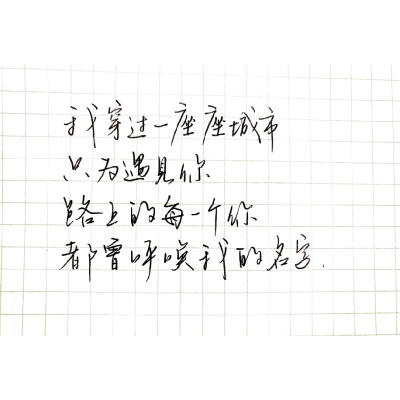 我穿过一座座城市
只为遇见你
路上的每一个你
都曾呼唤我的名字.